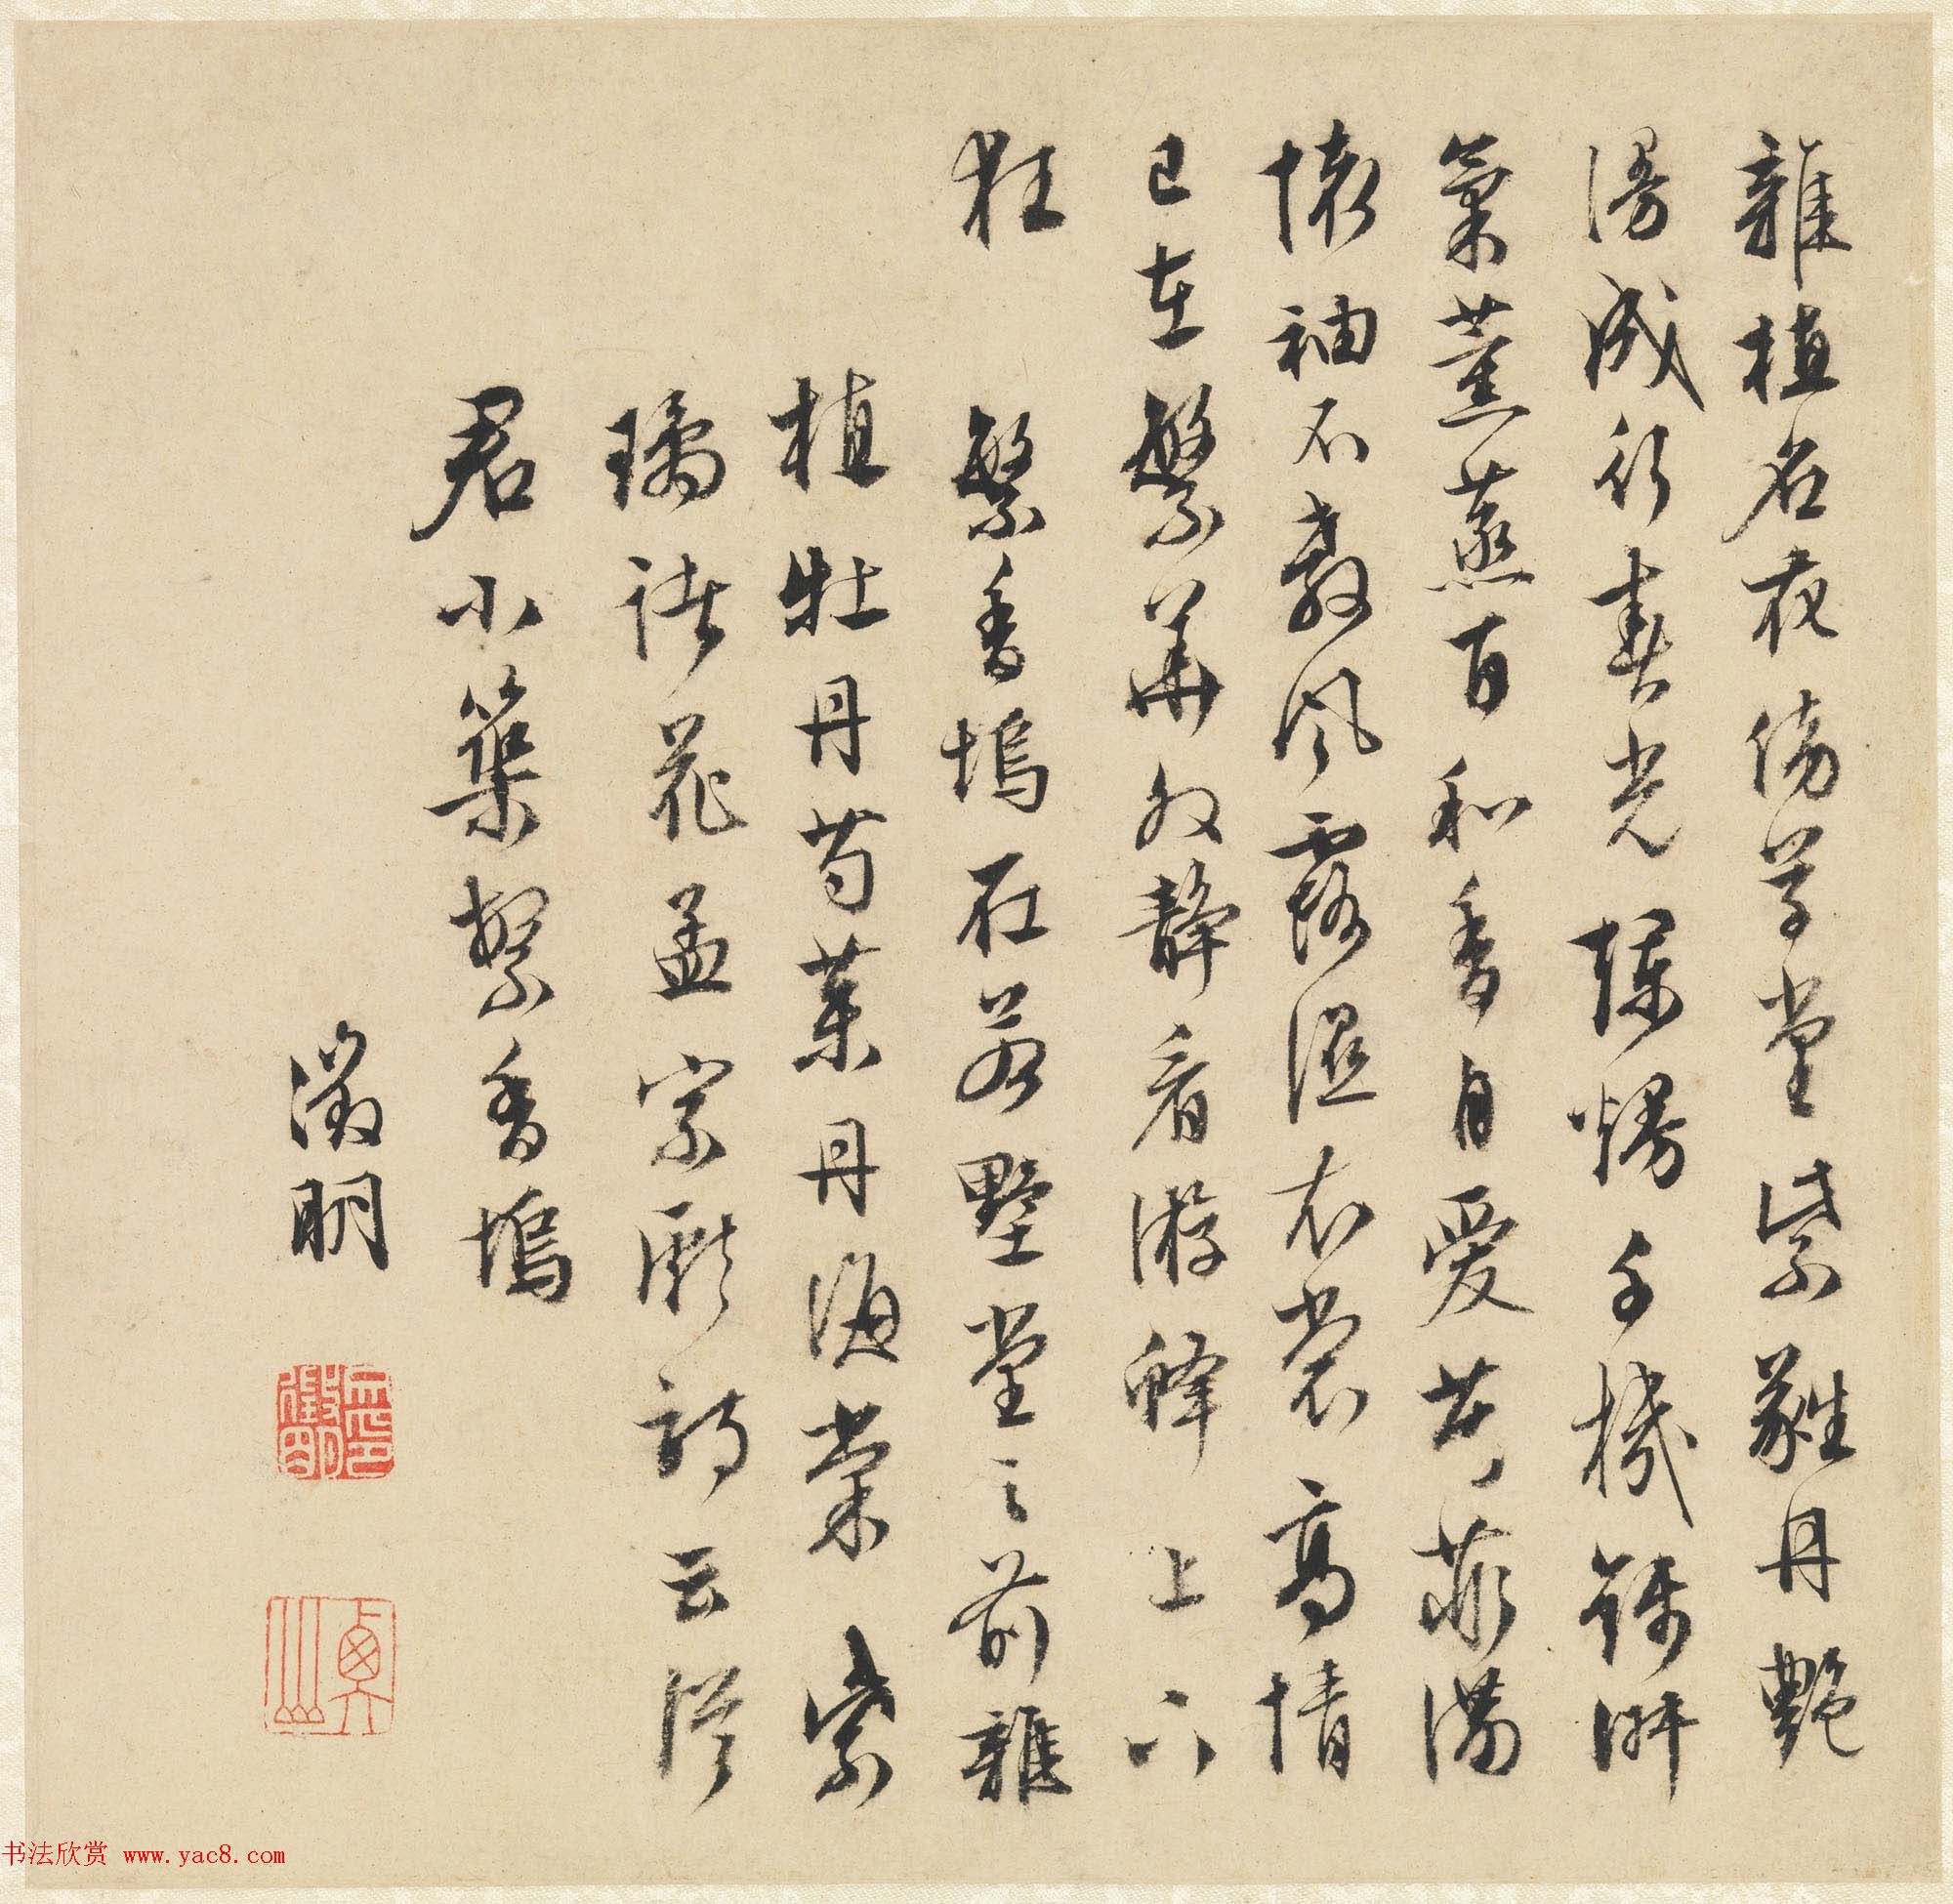 雜植名花傍草堂紫蕤丹艷
漫成行春光爛熳千機錦淑
氣薰蒸百和香自愛芳菲滿
懷袖不教風露濕衣裳高情
已在繁華外靜看游蜂上下
狂 繁香塢在若墅堂之前雜
植牡丹芍藥丹海棠紫
璚諸花孟宗獻詩云從
君小築繁香塢
徵明
书法欣赏 www.yac8.com